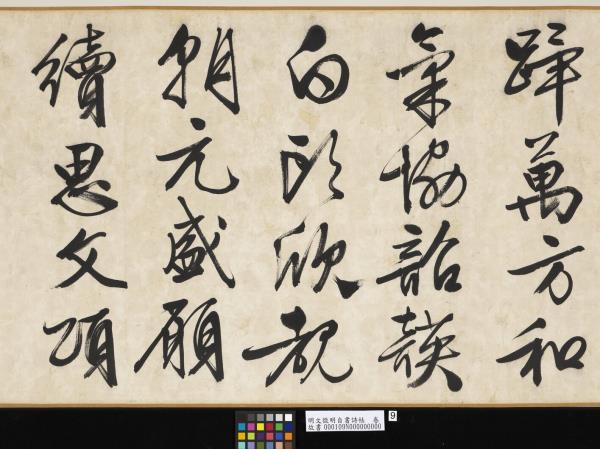 蹕萬方和
氣協韶韺
白頭欣覩
朝元盛願
續思文頌
明文徵明自書詩帖 卷
故書000109N000000000
9